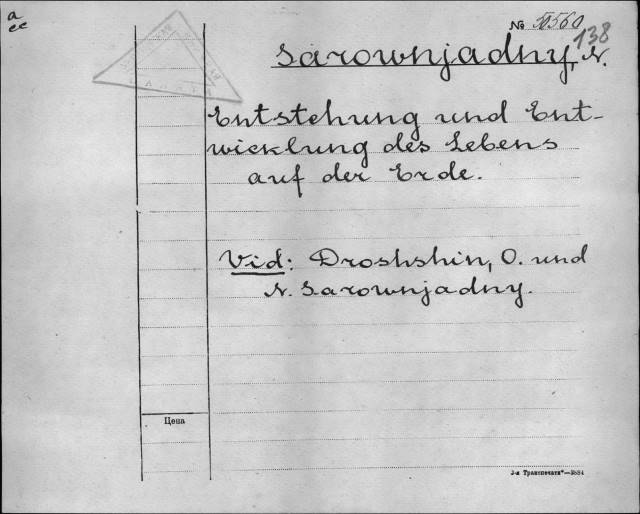 a
ee
№ 50560
138
Sarownjadny, N.
Entstehung und Ent-
wicklung des Lebens
auf der Erde.
Vid: Droshshin, O. und
N. Sarownjadny.
Цена